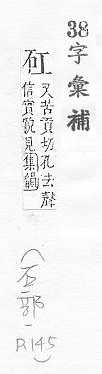 38字彙補
矼 又苦貢切孔去聲
信實貌見集韻
(石部- P.145)